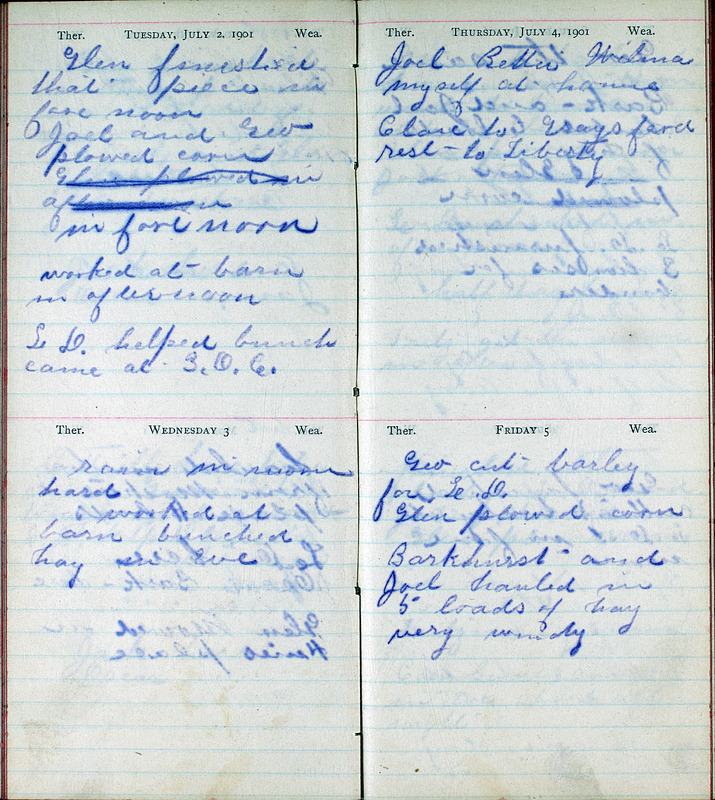 Ther. TUESDAY, JULY 2, 1901 Wea.
Glen finished
that piece in
fore noon
Joel and Geo
plowed corn
Glen plowed in
after noon
in fore noon
worked at barn
in after noon
L. D. helped bunch
came at 3. O. C.
Ther. WEDNESDAY 3 Wea.
rain in noon
hard
worked at
barn bunched
hay in Eve
Ther. THURSDAY, JULY 4, 1901 Wea.
Joel Wilma
myself at home
to Graysford
rest to Liberty
Ther. FRIDAY 5 Wea.
Geo cut barley
for L. D.
Glen plowed corn
Barkhurst and
Joel hauled in
5 loads of hay
very windy